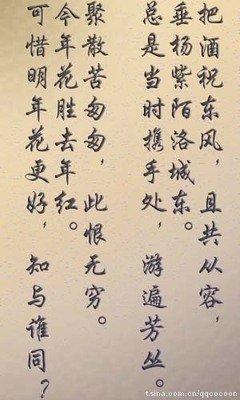 把酒祝东风，且共从容，
垂杨紫陌洛城东。
总是当时携手处，游遍芳丛。
聚散苦匆匆，此恨无穷。
今年花胜去年红。
可惜明年花更好，知与谁同？
t.sina.com.cn/qqcocoon